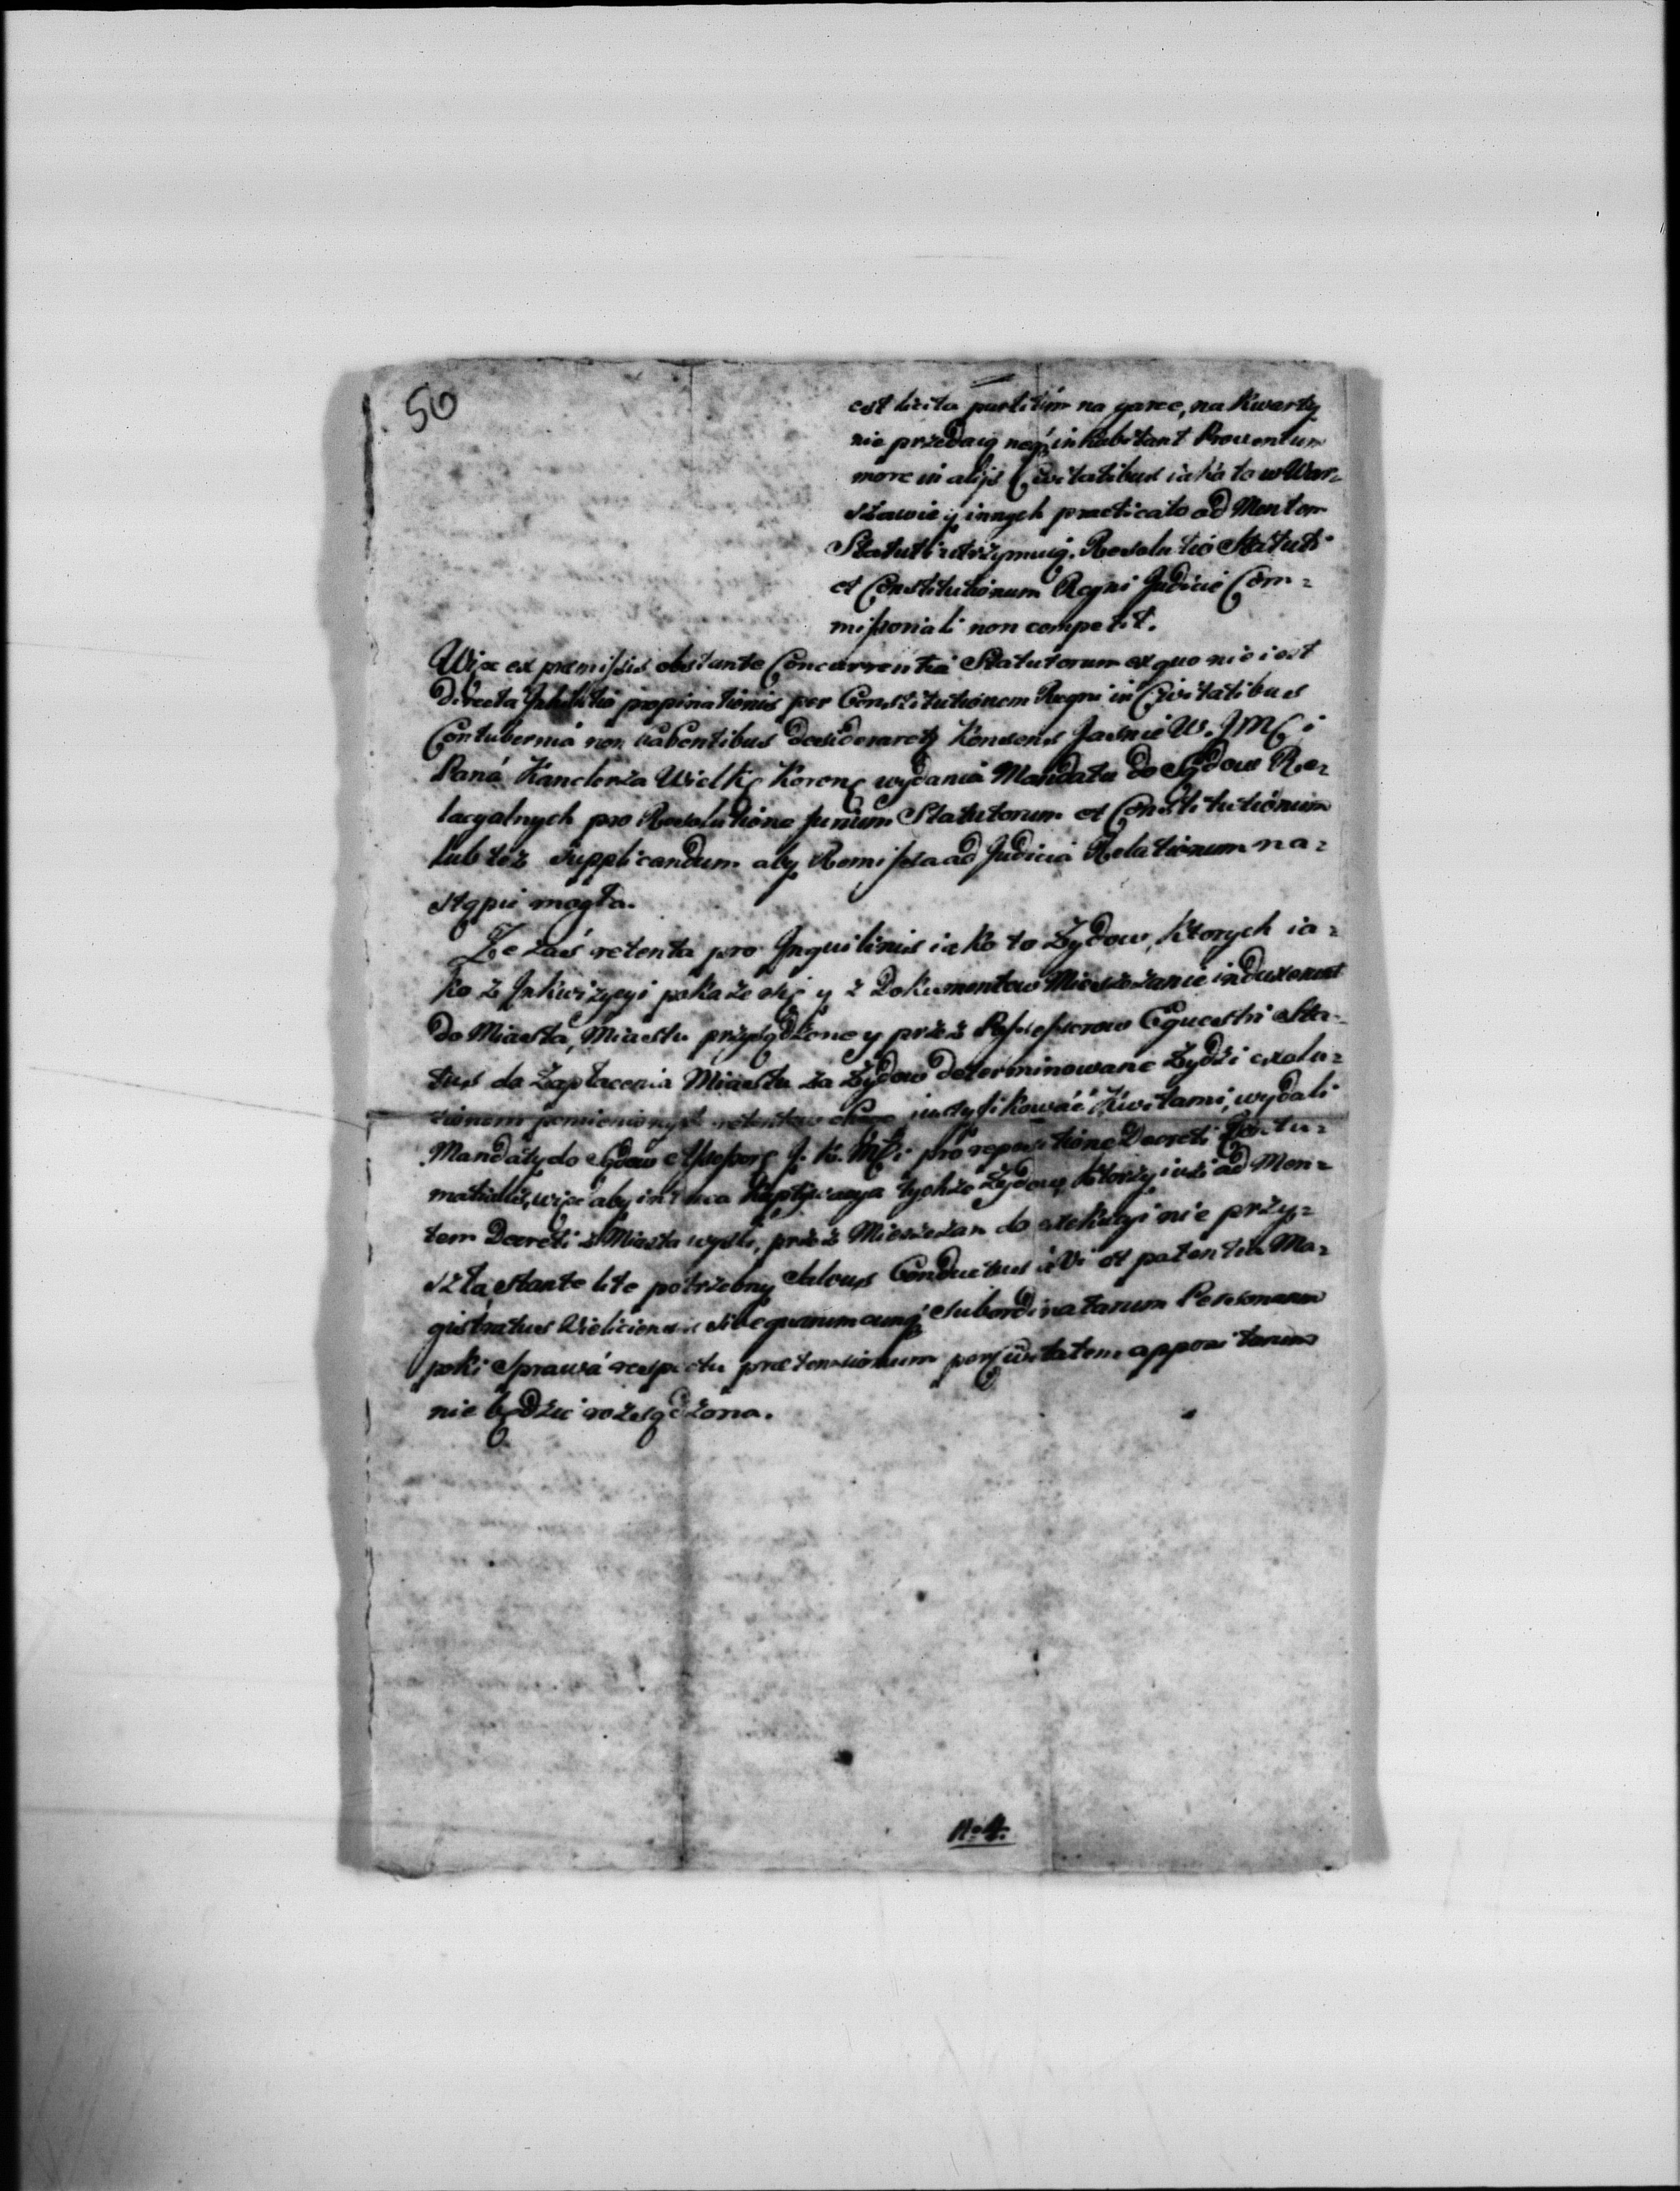 50
est licita partitim na garce, na kwarty
nie przedaią neq; inhabitant Proventum
more in alijs Civitatibus iako to w War=
szawie y innych practicato ad Mentem
Statuti utrzymuią. Resolutio Statuti
et Constitutionum Regni Judicio Com=
missoriali non competit.
Więc ex præmissis obstante Concurrentia Statutorum ex quo nie iest
directa Inhibitio propinationis per Constitutionem Regni in Civitatibus
Contubernia non habentibus desideraretur Konsens Jasnie W. JMCi
Pana Kanclerza Wielkº Koronº wydania Mandatu do Sądow Re=
lacyalnych pro Resolutione Jurium Statutorum et Constitutionum
lub też supplicandum aby Remissa ad Judicia Relationum na=
stąpić mogła.
Ze zaś retenta pro Inquilinis iako to Żydow, ktorych ia=
ko z Inkwizycyi pokaże się y z Dokumentow Mieszczanie induxerunt
do Miasta, Miastu przysądzone y przez Possessorow Equestris Sta=
tus do Zapłacenia Miastu za Żydow determinowane Żydzi exolu=
cionem pomienionych retentow iustyfikować kwitami, wydali
Mandaty do Sądow Assessors J. K. Mci pro repositione Decreti
więc aby kaptywacya tychże Żydow, ktorzy iuż ad Men=
tem Decreti z Miasta wyszli, przez Mieszczan do exekucyi nie przy=
szła, stante lite potrzebny Salvus Conductus a Vi et potentia Ma=
gistratus Vieliciensis sive quarumcunq; subordinatarum Personarum
poki Sprawa respectu prætensionum per Civitatem appositarum
nie będzie rozsądzona.
No 4.